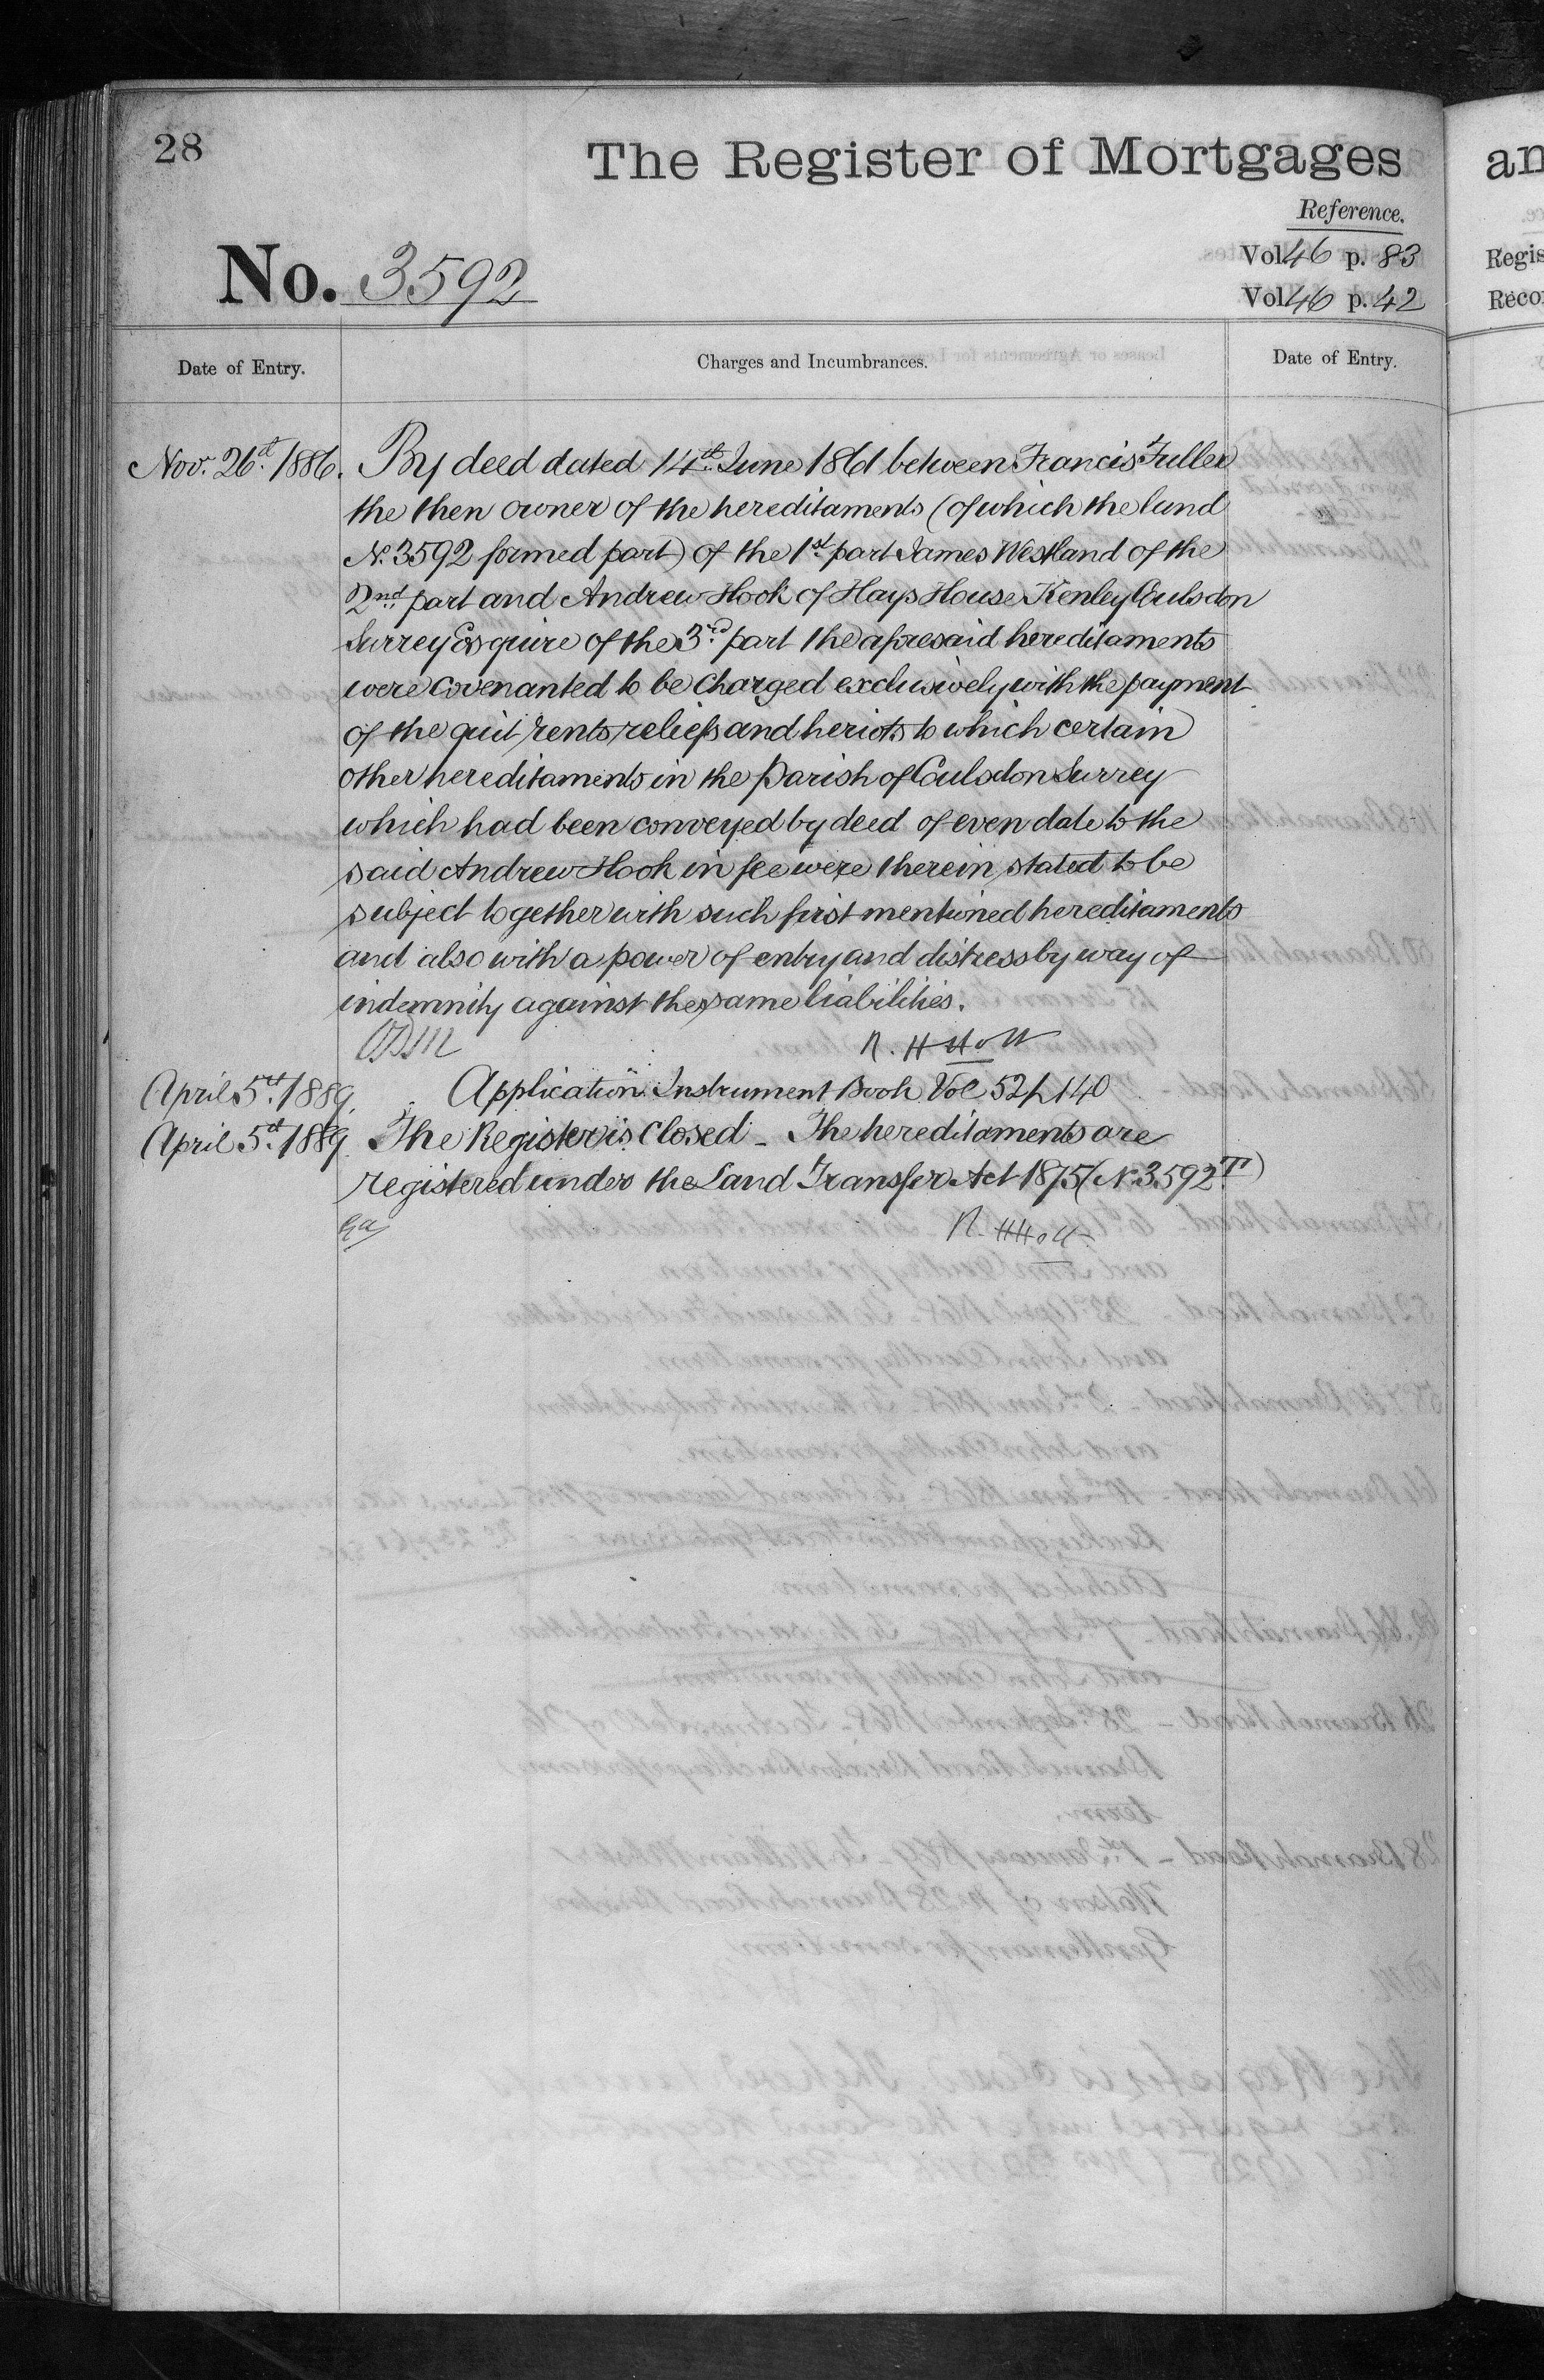 28
The Register of Mortgages
Reference.
No. 3592
Vol. 46 p. 83
Vol. 46 p. 42
Date of Entry.
Charges and Incumbrances.
Date of Entry.
Nov. 26th. 1886. By deed dated 14th. June 1861 between Francis Fuller
the then owner of the hereditaments (of which the land
No. 3592 formed part) of the 1st. part James Westland of the
2nd. part and Andrew Hook of Hays House Kenley Coulsdon
Surrey Esquire of the 3rd. part the aforesaid hereditaments
were covenanted to be charged exclusively with the payment
of the quit rents reliefs and heriots to which certain
other hereditaments in the Parish of Coulsdon Surrey
which had been conveyed by deed of even date to the
said Andrew Hook in fee were therein stated to be
subject together with such first mentioned hereditaments
and also with a power of entry and distress by way of
indemnity against the same liabilities.
R. H Holt
April 5th. 1889. Application Instrument Book Vol 52 p 140
April 5th. 1889. The Register is closed _ The hereditaments are
registered under the Land Transfer Act 1875 (No. 3592 TI)
R. H Holt
an
Regis
Recor